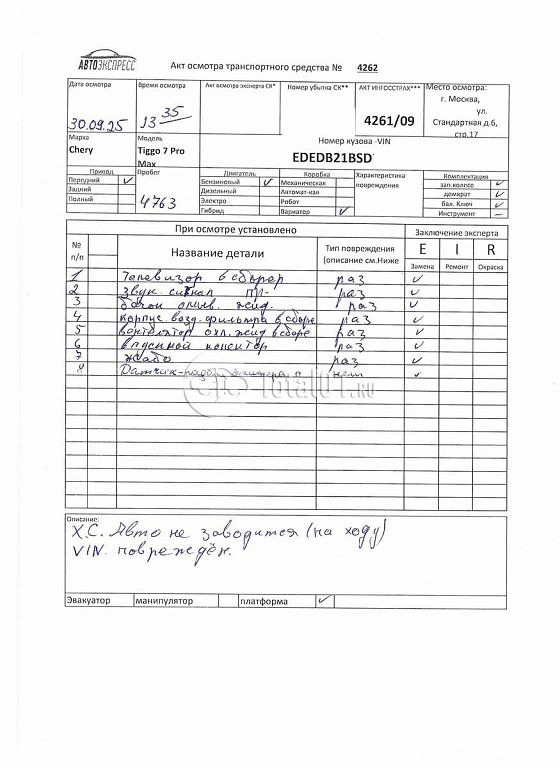 АВТОЭКСПРЕСС
Акт осмотра транспортного средства № 4262
Дата осмотра
30.09.25
Время осмотра
13 35
Акт осмотра эксперта СК*
Номер убытка СК**
АКТ ИНГОССТРАХ***
4261/09
Место осмотра:
г. Москва,
ул.
Стандартная д.6,
стр.17
Марка
Chery
Модель
Tiggo 7 Pro
Max
Номер кузова -VIN
EDEDB21BSD
Привод
Передний ✓
Задний
Полный
Пробег
4763
Двигатель
Бензиновый ✓
Дизельный
Электро
Гибрид
Коробка
Механическая
Автомат-кая
Робот
Вариатор ✓
Характеристика
повреждения
Комплектация
зап.колесо ✓
домкрат ✓
бал. Ключ ✓
Инструмент –
При осмотре установлено
Заключение эксперта
№
п/п
Название детали
Тип повреждения
(описание см.Ниже
E I R
Замена Ремонт Окраска
1 Телевизор в сборер раз ✓
2 звук. сигнал пр- раз ✓
3 бачок омыв. жид. раз ✓
4 корпус. возд. фильтра в сборе раз ✓
5 вентелятор охл. жид в сборе раз ✓
6 раз ✓
7 жабо раз ✓
8 Датчик- нет ✓
Total01.ru
Описание:
Х.С. Авто не заводится (на ходу)
VIN. поврежден.
Эвакуатор манипулятор платформа ✓